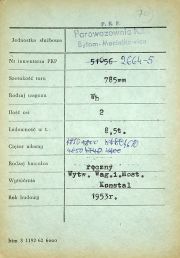 P. K. P.
Jednostka służbowa
Parowozownia
Nr inwentarza PKP 51656 2664-5
Szerokość toru 785mm
Rodzaj wagonu Wh
Ilość osi 2
Ładowność w t. 8,5t.
Ciężar własny
Rodzaj hamulca ręczny
Wytwórnia Wytw. Wag.i.Most. Konstal
Rok budowy 1953r.